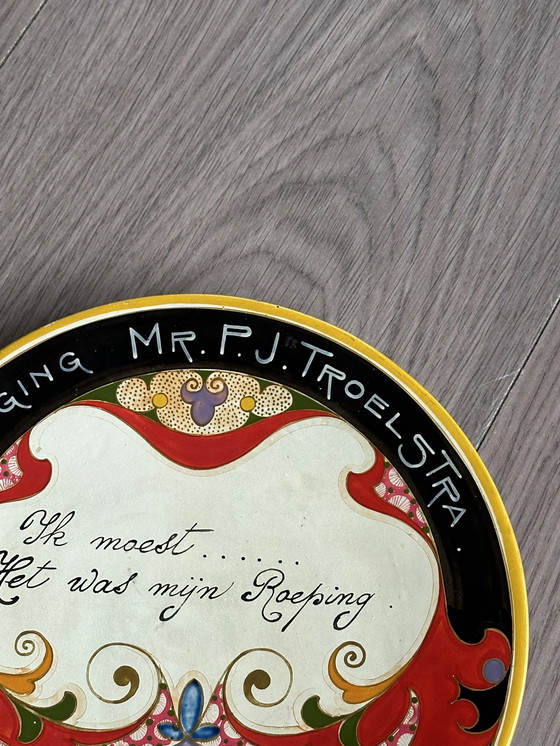 GING MR. P.J. TROELSTRA.
Ik moest.......
Het was mijn Roeping.